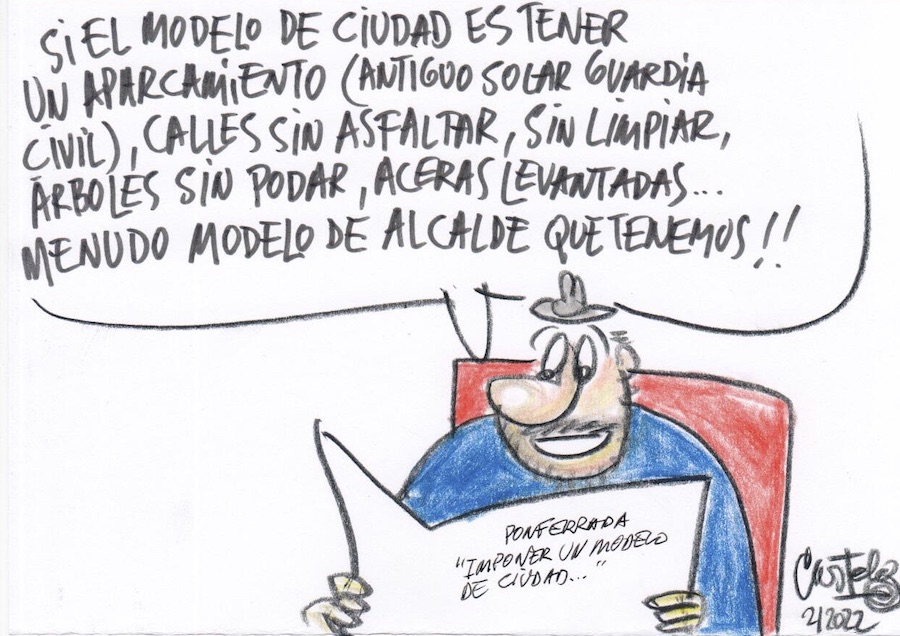 SI EL MODELO DE CIUDAD ES TENER
UN APARCAMIENTO (ANTIGUO SOLAR GUARDIA
CIVIL), CALLES SIN ASFALTAR, SIN LIMPIAR,
ÁRBOLES SIN PODAR, ACERAS LEVANTADAS...
MENUDO MODELO DE ALCALDE QUE TENEMOS!!
PONFERRADA
"IMPONER UN MODELO
DE CIUDAD..."
2/2022